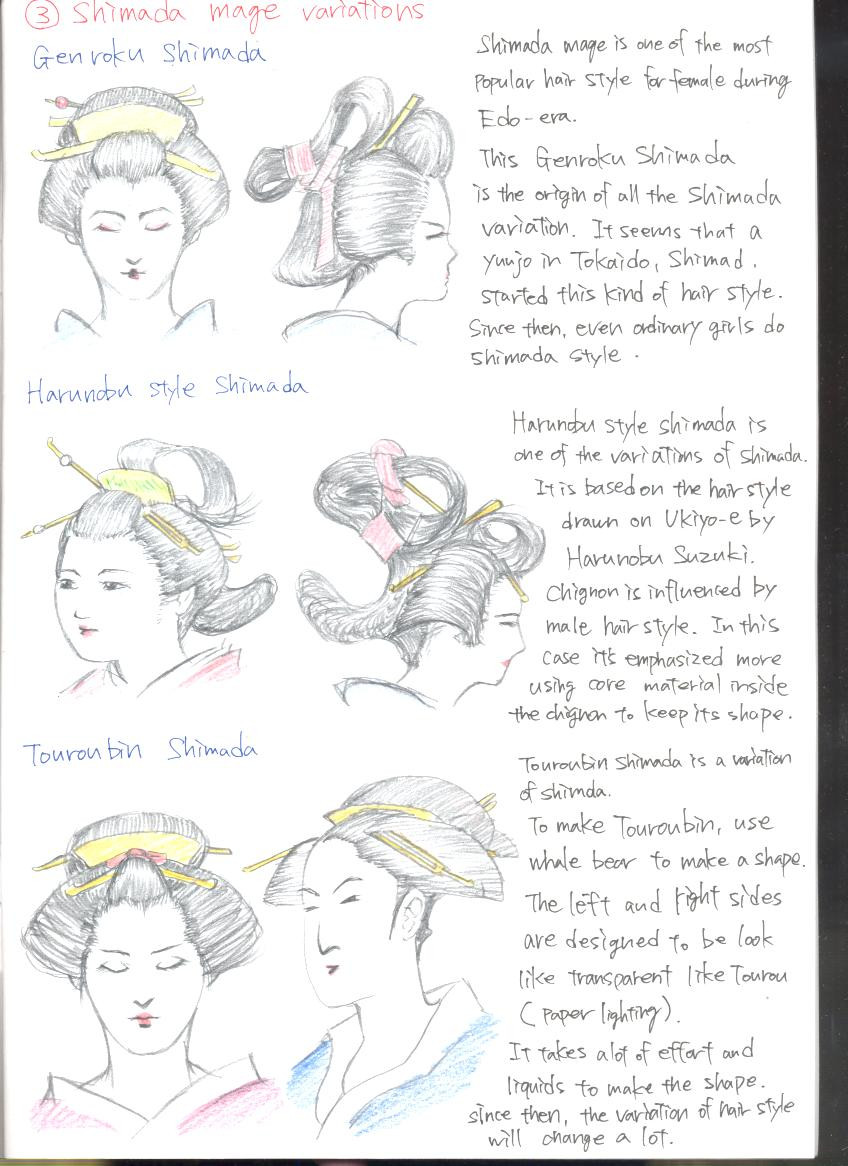 ③ Shimada mage variations
Genroku Shimada
Shimada mage is one of the most
popular hair style for female during
Edo-era.
This Genroku Shimada
is the origin of all the Shimada
variation. It seems that a
yuujo in Tokaido, Shimad.
started this kind of hair style.
Since then, even ordinary girls do
Shimada style.
Harunobu style Shimada
Harunobu style shimada is
one of the variations of shimada.
It is based on the hair style
drawn on Ukiyo-e by
Harunobu Suzuki.
Chignon is influenced by
male hair style. In this
case it's emphasized more
using core material inside
the chignon to keep its shape.
Touroubin Shimada
Touroubin shimada is a variation
of shimda.
To make Touroubin, use
whale bear to make a shape.
The left and right sides
are designed to be look
like transparent like Tourou
(paper lighting).
It takes a lot of effort and
liquids to make the shape.
since then, the variation of hair style
will change a lot.